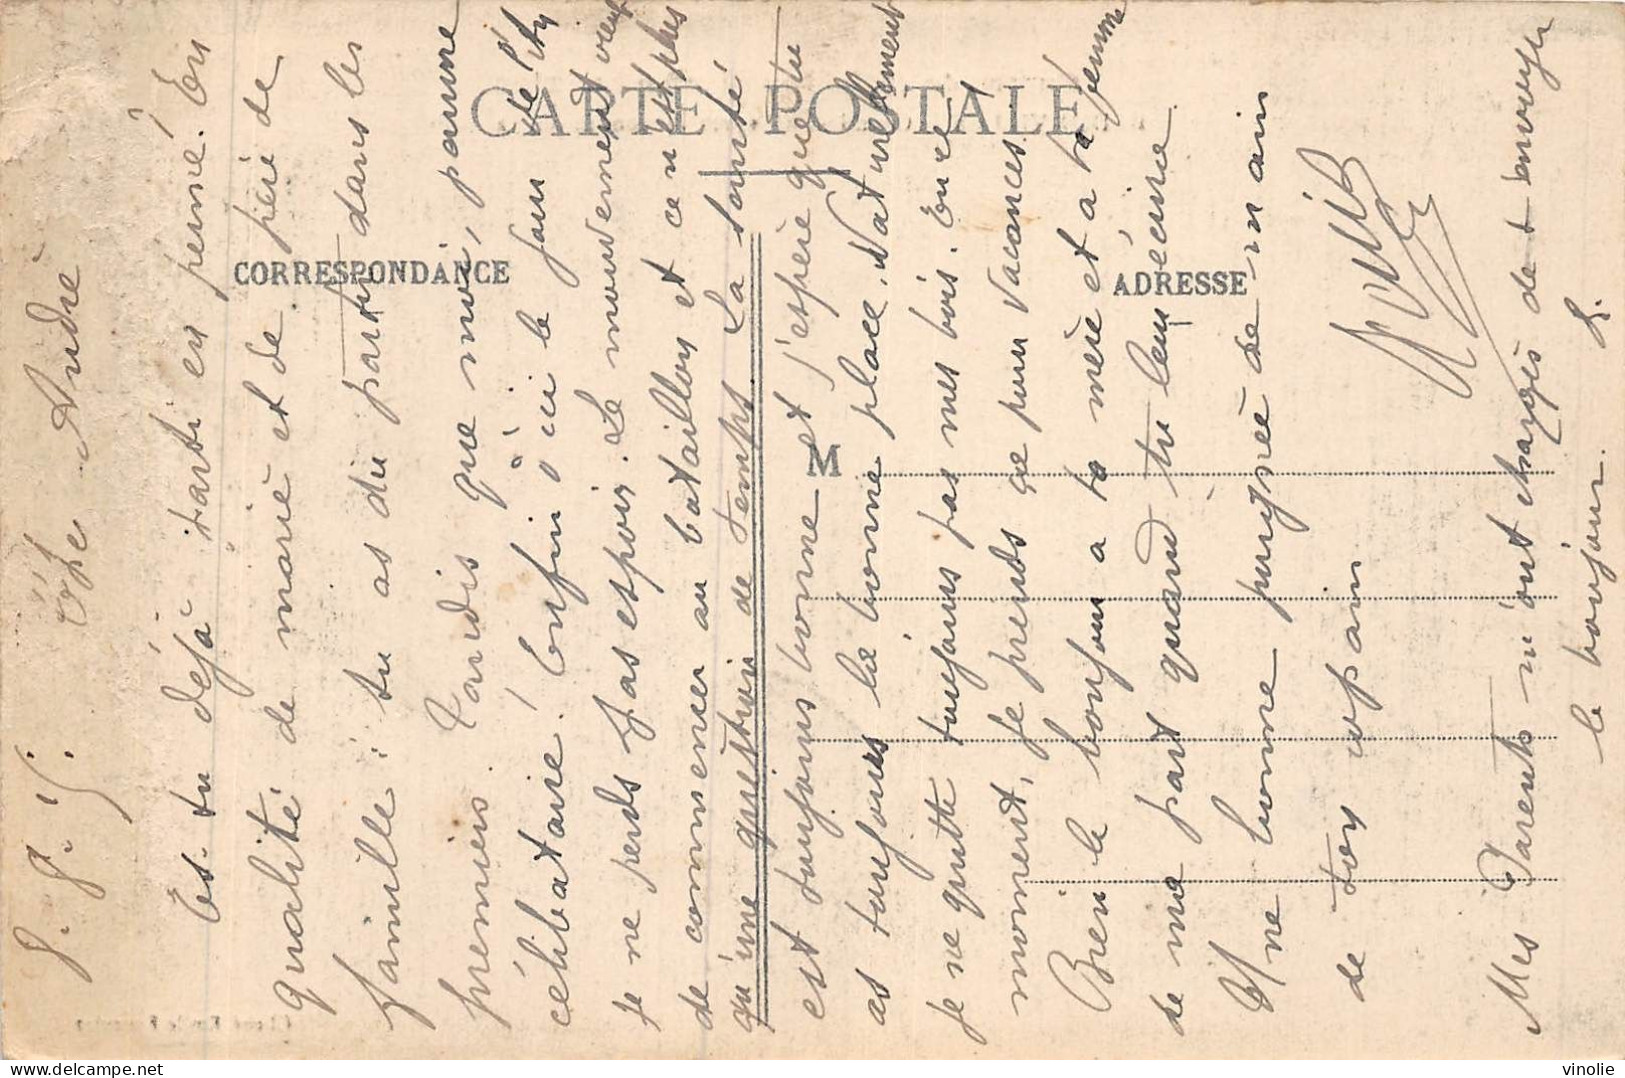 8. 8. 15. Cher André
Es-tu déjà parti en permé. En
qualité de marié et de père de
famille : tu as du partir dans les
premiers. Tandis que moi, pauvre
célibataire ! Enfin d'ici le jour de l'
je ne perds pas espoir. Le mouvement vient
de commencer au bataillon et ce n'est plus
qu'une question de temps. La santé
est toujours bonne et j'espère que tu
as toujours la bonne place. Naturellement
je ne quitte toujours pas mes bois. En ce
moment, je prends ça pour vacances.
Bien le bonjour a ta mère et a ta femme
de ma part quand tu leur écrira
Une bonne poignée de main
de ton copain
Mes Parents m'ont chargés de t'envoyer
le bonjour. L.
CARTE POSTALE
CORRESPONDANCE
ADRESSE
M
vinolie